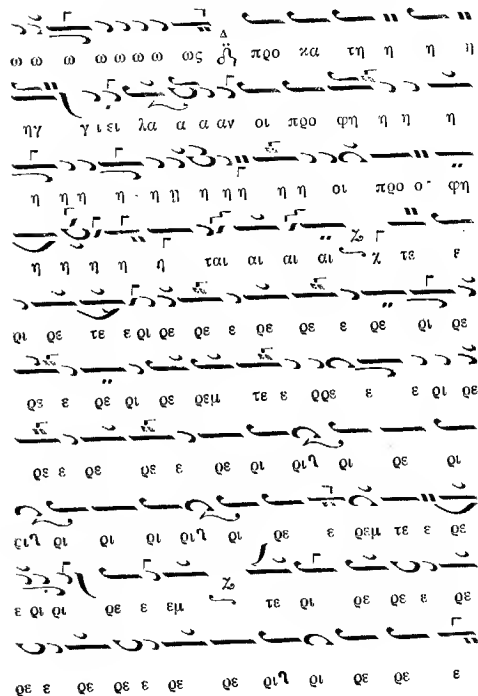 ω ω ω ω ω ω ω ως προ κα τη η η η
ηγ γ ει ει λα α α αν οι προ φη η η η
η η η η η η η η η η οι προ ο φη
η η η η η ται αι αι αι χ τε ε
ρι ρε τε ε ρι ρε ρε ε ρε ρε ε ρε ρι ρε
ρε ε ρε ρι ρε ρεμ τε ε ρρε ε ε ρι ρε
ρε ε ρε ρε ε ρι ρι ριν ρι ρε ρι
ριν ρι ρι ρι ριν ρι ρε ε ρεμ τε ε ρε
ε ρι ρι ρε ε εμ τε ρι ρε ρε ε ρε
ρε ε ρε ρε ε ρε ρε ριν ρι ρε ρε ε